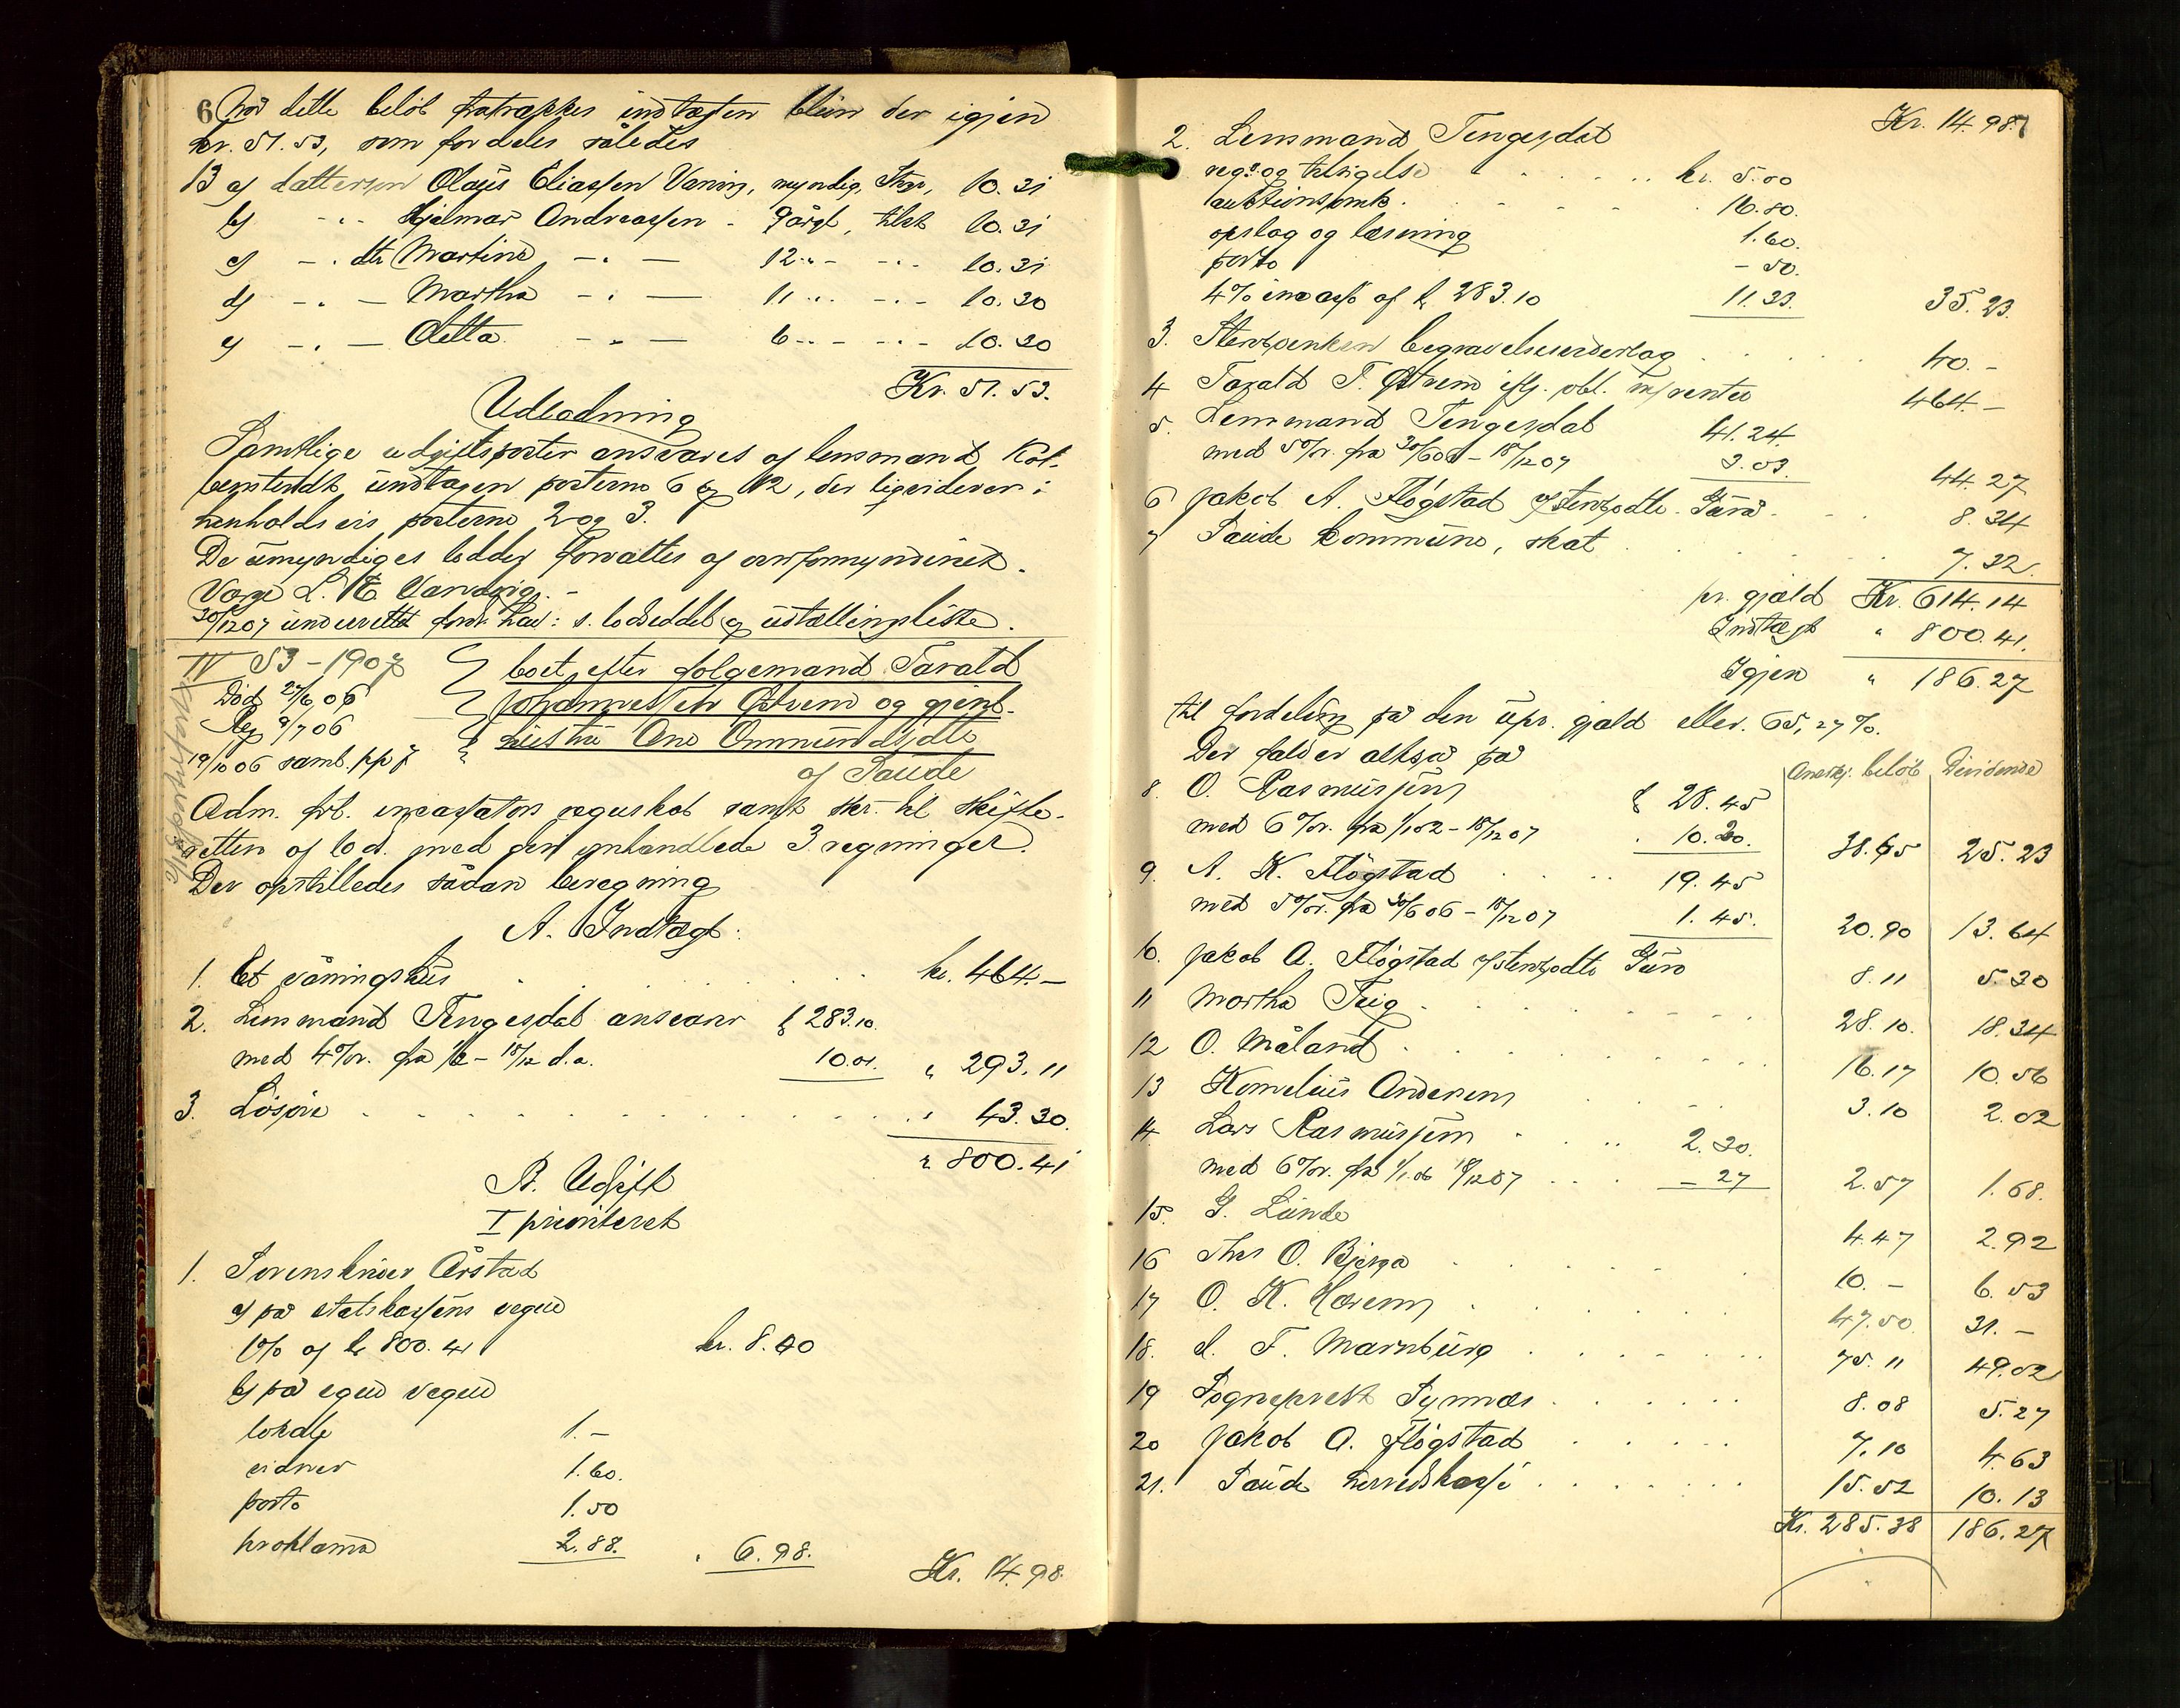 6 Når dette beløb fratrækkes indtægten bliver der igjen
kr. 51.53, som fordeles således
13 a) dattersøn Olaus Eliassen Vaning, myndig, Stvgr, 10.31
b) - " - Hjalmar Andreassen - 9 årgl, tilst 10.31
c) - " dtr Martine - " - 12 " - - " - 10.31
d) - " - Martha - " - 11 " - - " - 10.30
e) - " - Detta - " - 6 " - - " - 10.30
Kr. 51.53.
Udlodning
Samtlige udgiftsposter ansvares af lensmand Kol-
benstvedt undtagen posterne 6 og 12, der ligviderer i
henholdsvis posterne 2 og 3.
De umyndiges lodder forvaltes af overformynderiet.
Værge L. E. Vanvig. -
30/12 07 underrettet s. lodseddel og udstællingsliste.
IV 53-1907
Død 27/6 06
Reg 9/7 06
19/10 06 samb. pp f
boet efter folgemand Tarald
Johannessen Østrem og gjenl.
hustru Ane Ommundsdtr
af Saude
Adm. frb. incassators regnskab samt skr. til skifte-
retten af 6 d. med deri omhandlede 3 regninger.
Der opstilledes sådan beregning
A. Indtægt:
1. Et våningshus . . . kr. 464.-
2. Lensmand Tengesdal ansvarer kr 283.10.
med 4% r. fra 1/2 - 18/12 d.a. 10.01. " 293.11
3. Løsøre . . . " 43.30.
" 800.41
B. Udgift
I prioriteret
1. Sorenskriver Årstad
a) på statskassens vegne
1% af kr 800.41 kr. 8.00
b) på egne vegne
lokale 1.-
vidner 1.60.
porto 1.50
proklama 2.88. " 6.98.
Kr. 14.98.
Kr. 14.98. 7
2. Lensmand Tengesdal
regs og tilsigelse . . . kr. 5.00
auktionsomk. 16.80.
opslag og læsning 1.60.
porto - 50.
4% incasso af kr 283.10 11.33. 35.23.
3. Stervboenken begravelsesvederlag . . . 40.-
4 Tarald T. Østrem iflg. obl. m/renter 464.-
5. Lensmand Tengesdal 41.24.
med 5% r. fra 30/6 06 - 18/12 07 3.03. 44.27
6 Jakob A. Fløgstad f/stervbodtr. Guro . . . 8.34
7 Saude kommune, skat . . . 7.32.
pr. gjæld Kr. 614.14
Indtægt " 800.41.
Igjen " 186.27
til fordeling på den upr. gjæld eller. 65,27%.
Der falder altså på
Anerkj. beløb Dividende
8. O. Rasmussen kr 28.45
med 6% r. fra 1/1 02 - 18/12 07 . 10.20. 38.65 25.23
9. A. K. Fløgstad . . . 19.45
med 5% r. fra 30/6 06 - 18/12 07 1.45. 20.90 13.64
10. Jakob A. Fløgstad f/stervbodtr Guro 8.11 5.30
11 Martha Teig . . . 28.10. 18.34
12 O. Måland . . . 16.17 10.56
13 Kornelius Andersen . . . 3.10 2.02
14 Lars Rasmussen . . . 2.30.
med 6% r. fra 1/1 06 18/12 07 . . . - 27 2.57 1.68.
15. G. Lunde 4.47 2.92
16 Ths O. Bjerga . . . 10.- 6.53
17 O. K. Havrem . . . 47.50 31.-
18. I. F. Marnburg . . . 75.11 49.02
19 Sogneprest Synnæs . . . 8.08 5.27
20 Jakob A. Fløgstad . . . 7.10 4.63
21. Saude herredskasse . . . 15.52 10.13
Kr. 285.38 186.27